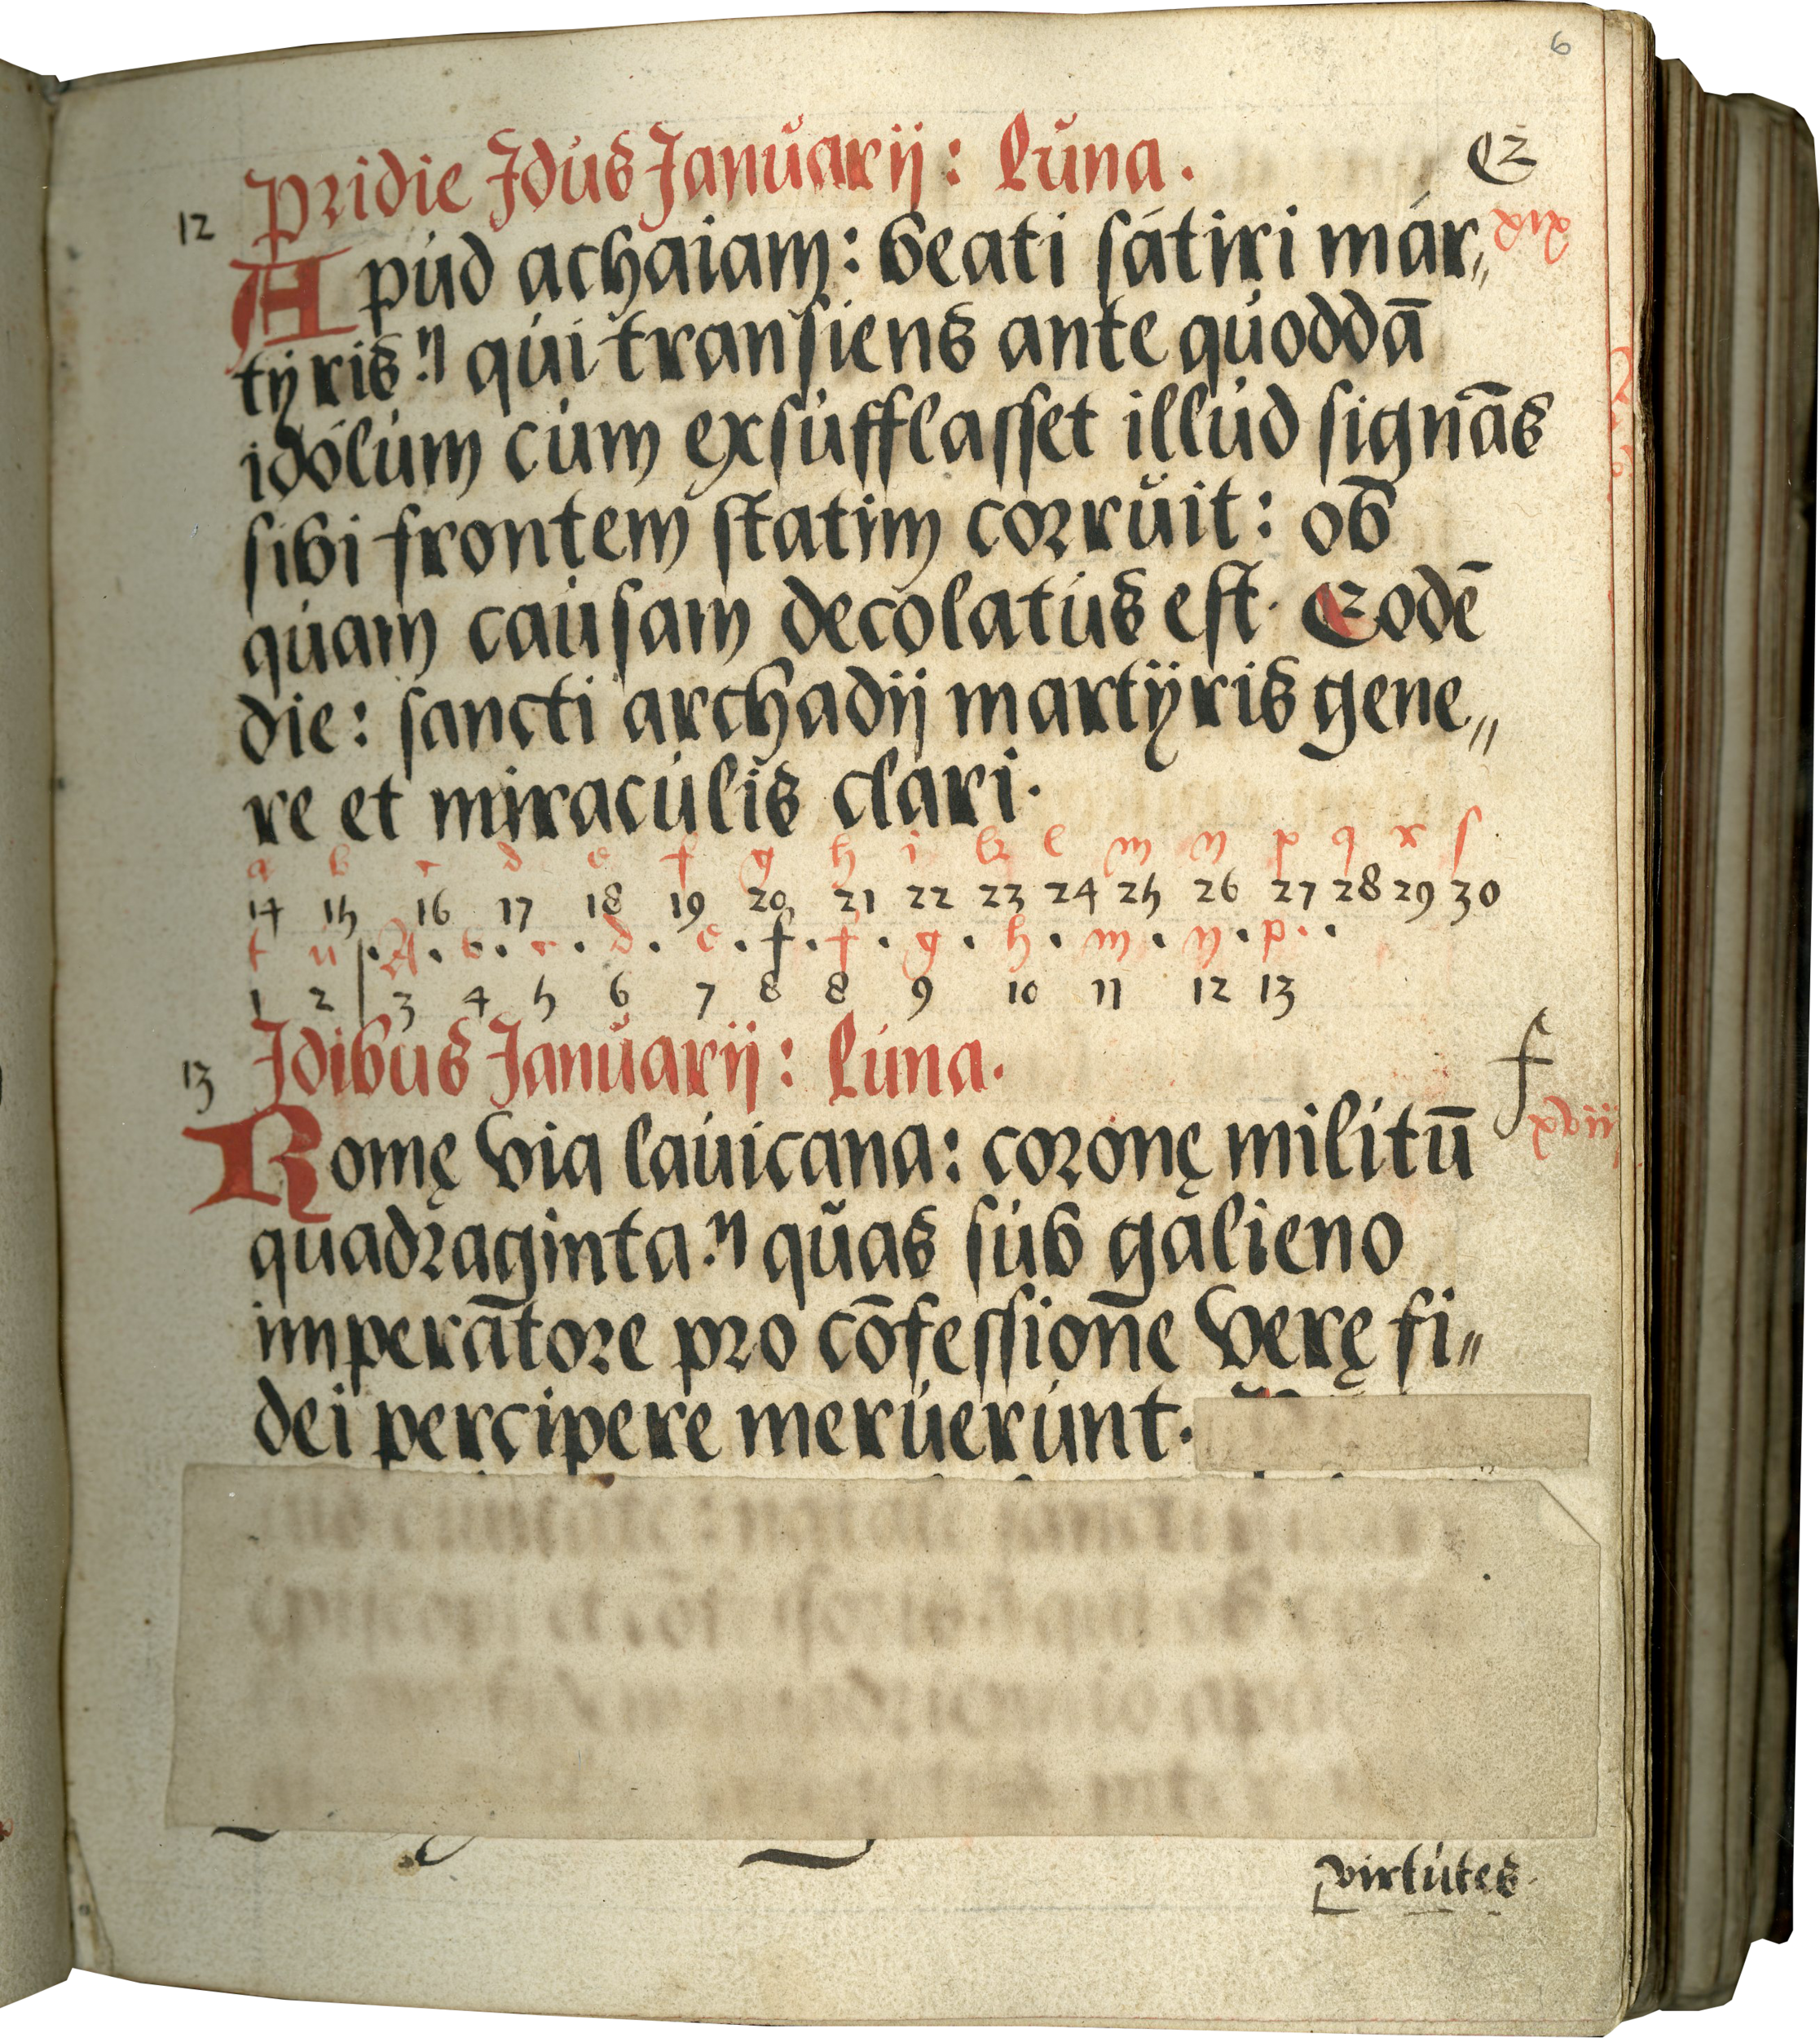 6
Pridie Idus Januarij: Luna.
E
12
xix
Apud achaiam: beati sátiri már„
tyris: qui transiens ante quoddā
idólum cum exsufflasset illud signās
sibi frontem statim corruit: ob
quam causam decolatus est. Eodē
die: sancti archadij martyris gene„
re et miraculis clari.
a b c d e f g h i k l m n p q r s
14 15 16 17 18 19 20 21 22 23 24 25 26 27 28 29 30
t u . A . b . c . d . e . f . f . g . h . m . n . p . .
1 2 3 4 5 6 7 8 8 9 10 11 12 13
Idibus Januarij: Luna.
f
13
xviii
Romę via lauicana: coronę militū
quadraginta: quas sub galieno
imperatore pro cōfessione verę fi„
dei percipere meruerunt.
virtutes.